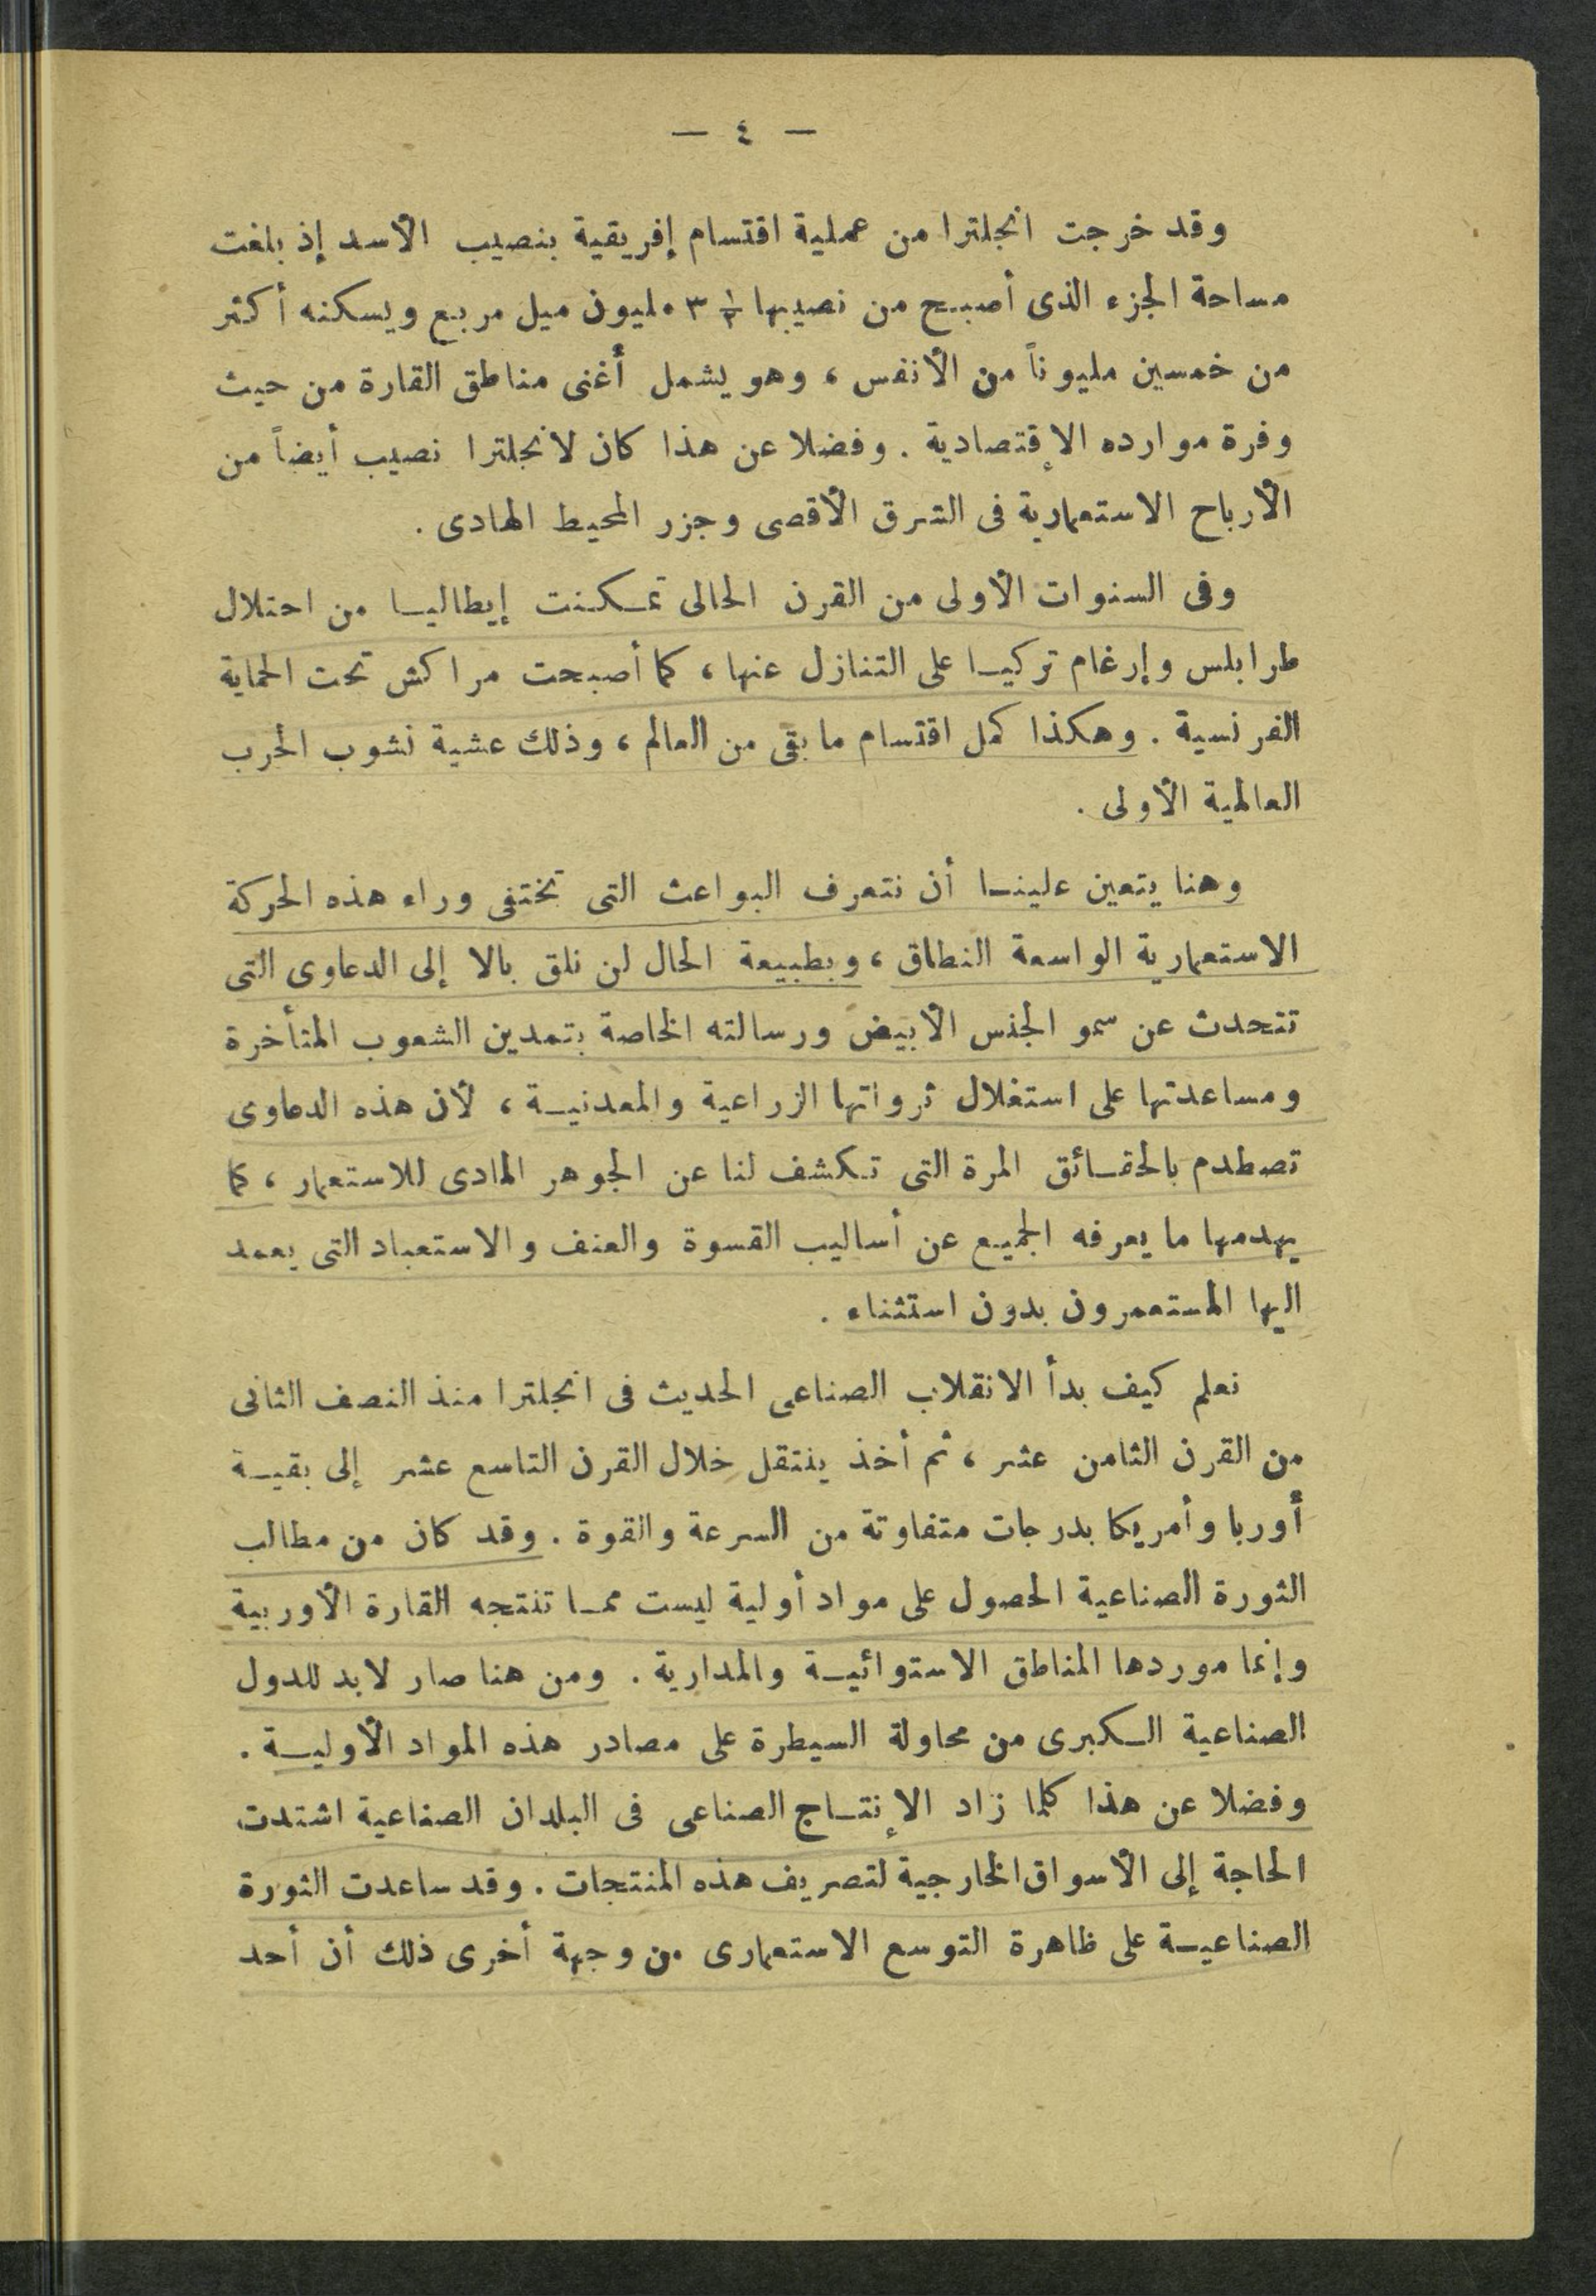 — ٤ —
وقد خرجت انجلترا من عملية اقتسام إفريقية بنصيب الأسد إذ بلغت
مساحة الجزء الذى أصبح من نصيبها ½ ٣ مليون ميل مربع ويسكنه أكثر
من خمسين مليوناً من الأنفس ، وهو يشمل أغنى مناطق القارة من حيث
وفرة موارده الإقتصادية . وفضلا عن هذا كان لانجلترا نصيب أيضاً من
الأرباح الاستعمارية فى الشرق الأقصى وجزر المحيط الهادى .
وفى السنوات الأولى من القرن الحالى تمكنت إيطاليا من احتلال
طرابلس وإرغام تركيا على التنازل عنها ، كما أصبحت مراكش تحت الحماية
الفرنسية . وهكذا كمل اقتسام ما بقى من العالم ، وذلك عشية نشوب الحرب
العالمية الأولى .
وهنا يتعين علينا أن نتعرف البواعث التى تختفى وراء هذه الحركة
الاستعمارية الواسعة النطاق ، وبطبيعة الحال لن نلق بالا إلى الدعاوى التى
تتحدث عن سمو الجنس الأبيض ورسالته الخاصة بتمدين الشعوب المتأخرة
ومساعدتها على استغلال ثرواتها الزراعية والمعدنية ، لأن هذه الدعاوى
تصطدم بالحقائق المرة التى تكشف لنا عن الجوهر المادى للاستعمار ، كما
يهدمها ما يعرفه الجميع عن أساليب القسوة والعنف والاستعباد التى يعمد
اليها المستعمرون بدون استثناء .
نعلم كيف بدأ الانقلاب الصناعى الحديث فى انجلترا منذ النصف الثانى
من القرن الثامن عشر ، ثم أخذ ينتقل خلال القرن التاسع عشر إلى بقية
أوربا وأمريكا بدرجات متفاوتة من السرعة والقوة . وقد كان من مطالب
الثورة الصناعية الحصول على مواد أولية ليست مما تنتجه القارة الأوربية
وإنما موردها المناطق الاستوائية والمدارية . ومن هنا صار لابد للدول
الصناعية الكبرى من محاولة السيطرة على مصادر هذه المواد الأولية .
وفضلا عن هذا كلما زاد الإنتاج الصناعى فى البلدان الصناعية اشتدت
الحاجة إلى الأسواق الخارجية لتصريف هذه المنتجات . وقد ساعدت الثورة
الصناعية على ظاهرة التوسع الاستعمارى من وجهة أخرى ذلك أن أحد